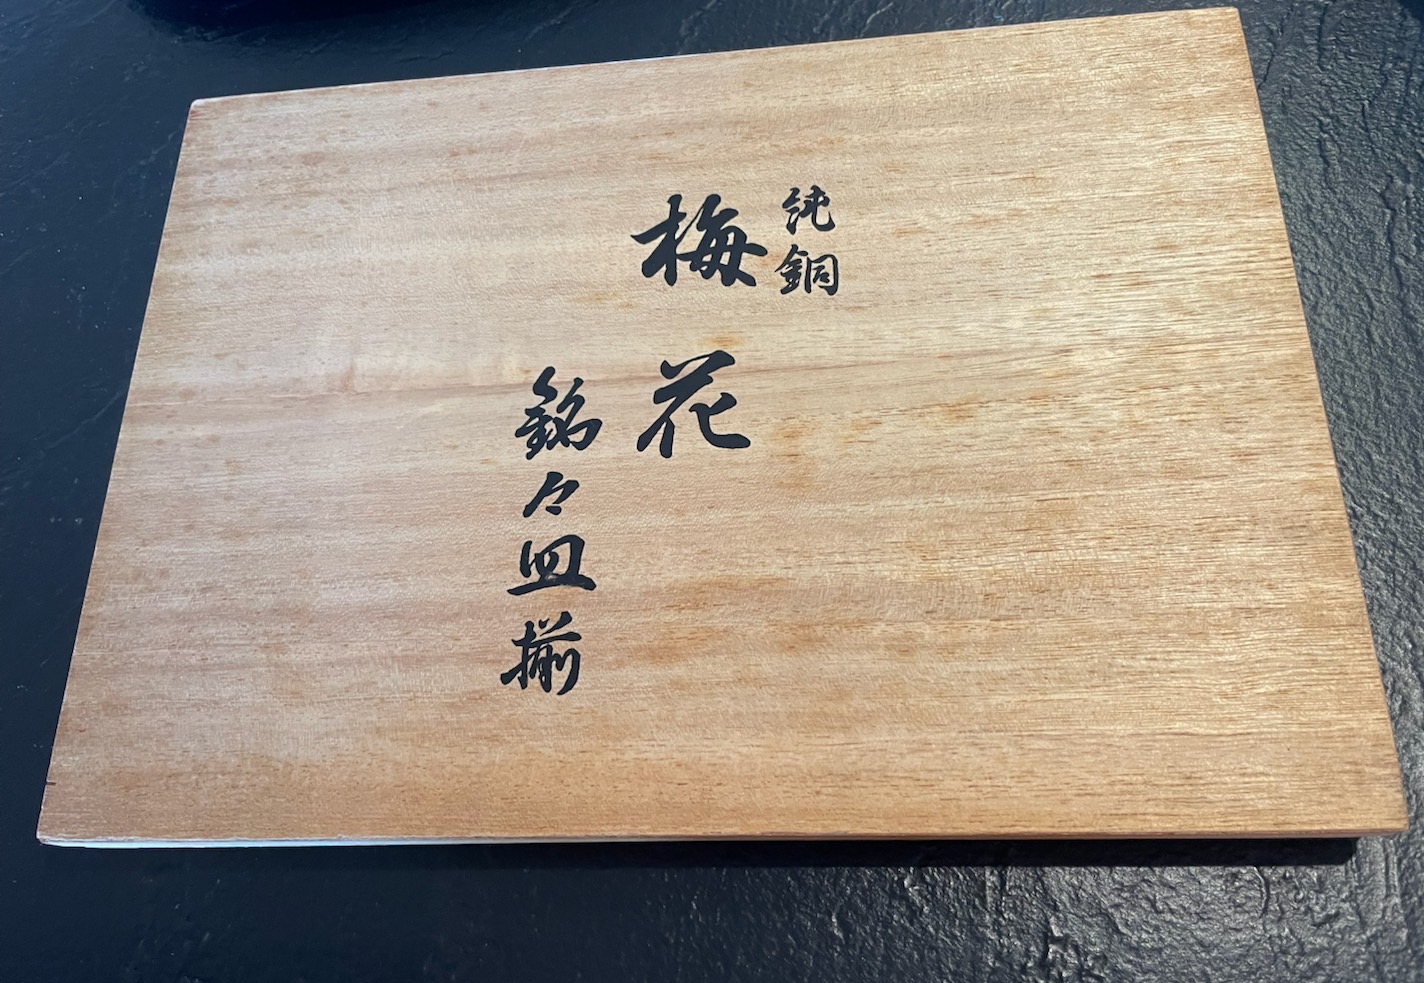 純銅
梅花
銘々皿揃